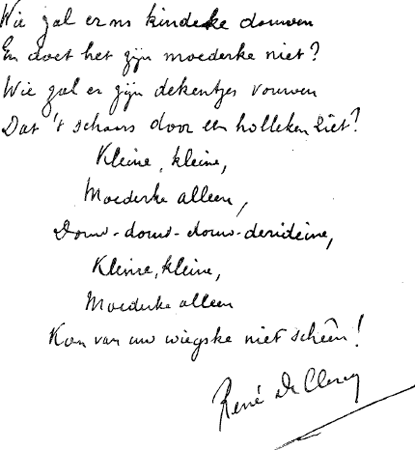 Wie zal er ons kindeke douwen
En doet het zijn moederke niet?
Wie zal er zijn dekentjes vouwen
Dat 't schaars door een holleken ziet?
Kleine, kleine,
Moederke alleen,
Douw-douw-douw-derideine,
Kleine, kleine,
Moederke alleen
Kan van uw wiegske niet scheên!
René De Clercq